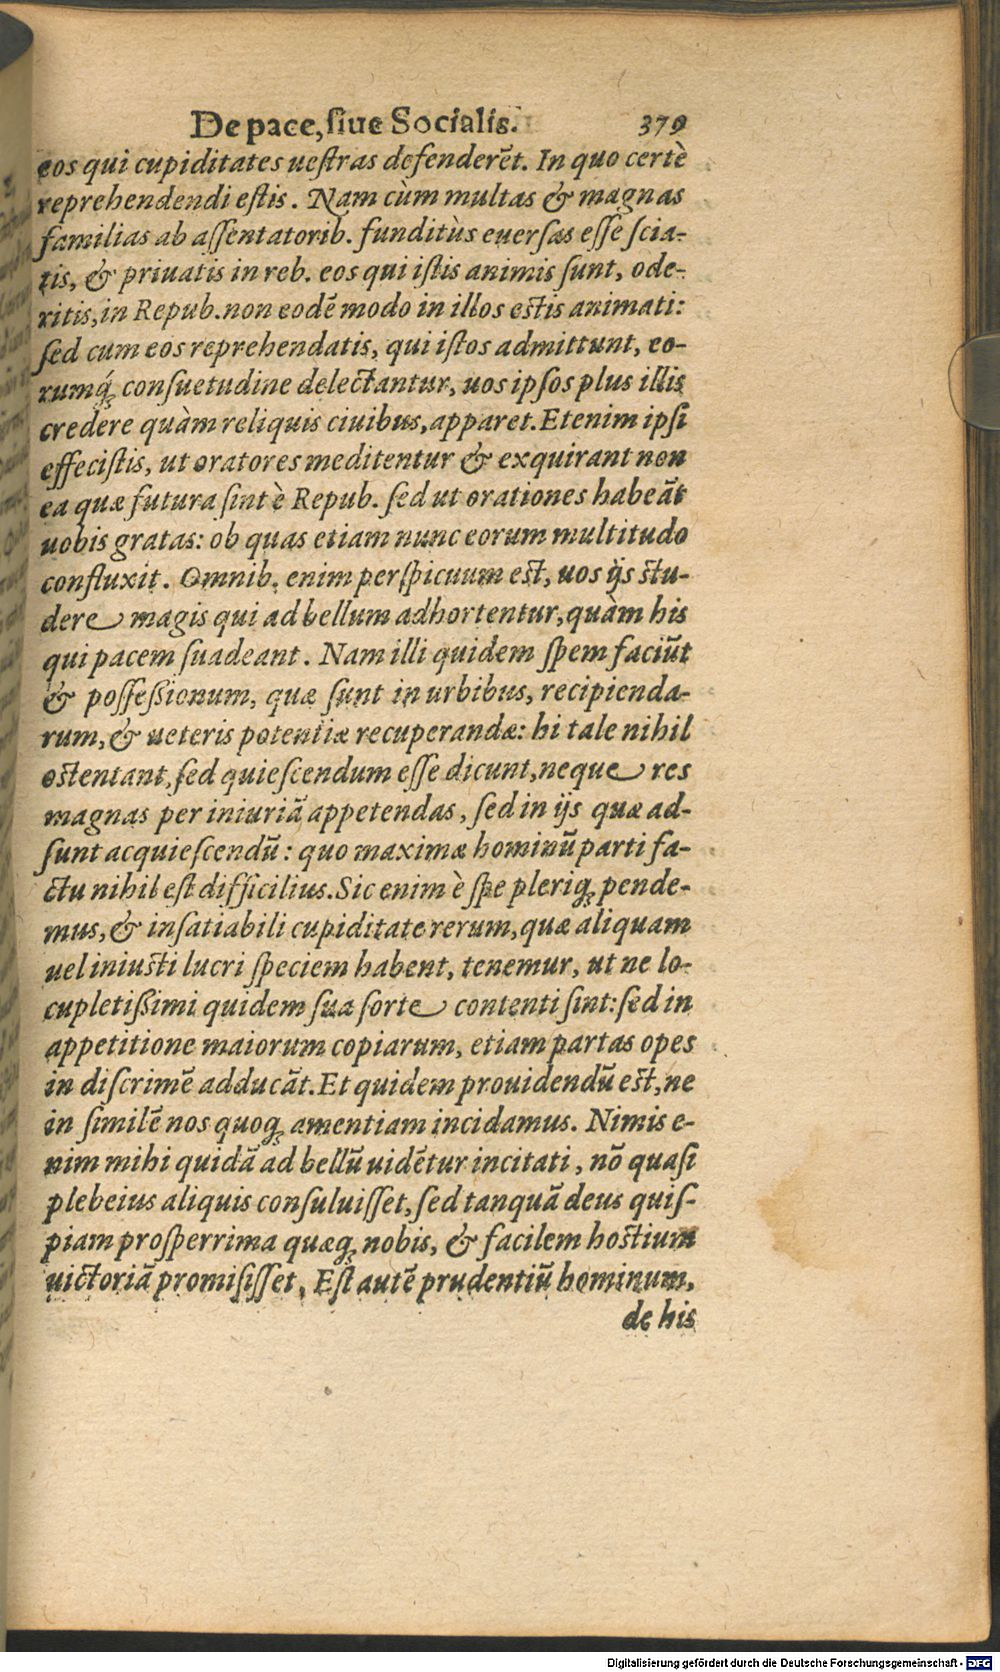 De pace, ſiue Socialis. 379
eos qui cupiditates ueſtras defenderēt. In quo certè
reprehendendi eſtis. Nam cùm multas & magnas
familias ab aſſentatorib. funditùs euerſas eſſe ſcia-
tis, & priuatis in reb. eos qui iſtis animis ſunt, ode-
ritis, in Repub. non eodē modo in illos eſtis animati:
ſed cum eos reprehendatis, qui iſtos admittunt, eo-
rumq́ꝫ conſuetudine delectantur, uos ipſos plus illis
credere quàm reliquis ciuibus, apparet. Etenim ipſi
effeciſtis, ut oratores meditentur & exquirant non
ea quæ futura ſint è Repub. ſed ut orationes habeāt
uobis gratas: ob quas etiam nunc eorum multitudo
confluxit. Omnib. enim perſpicuum eſt, uos ijs ſtu-
dere magis qui ad bellum adhortentur, quàm his
qui pacem ſuadeant. Nam illi quidem ſpem faciūt
& poſſeßionum, quæ ſunt in urbibus, recipienda-
rum, & ueteris potentiæ recuperandæ: hi tale nihil
oſtentant, ſed quieſcendum eſſe dicunt, neque res
magnas per iniuriā appetendas, ſed in ijs quæ ad-
ſunt acquieſcendū: quo maximæ hominū parti fa-
ctu nihil eſt difficilius. Sic enim è ſpe pleriqꝫ pende-
mus, & inſatiabili cupiditate rerum, quæ aliquam
uel iniuſti lucri ſpeciem habent, tenemur, ut ne lo-
cupletißimi quidem ſua ſorte contenti ſint: ſed in
appetitione maiorum copiarum, etiam partas opes
in diſcrimē adducāt. Et quidem prouidendū eſt, ne
in ſimilē nos quoqꝫ amentiam incidamus. Nimis e-
nim mihi quidā ad bellū uidētur incitati, nō quaſi
plebeius aliquis conſuluiſſet, ſed tanquā deus quiſ-
piam proſperrima quæqꝫ nobis, & facilem hoſtium
uictoriā promiſiſſet. Eſt autē prudentiū hominum,
de his
Digitalisierung gefördert durch die Deutsche Forschungsgemeinschaft - DFG